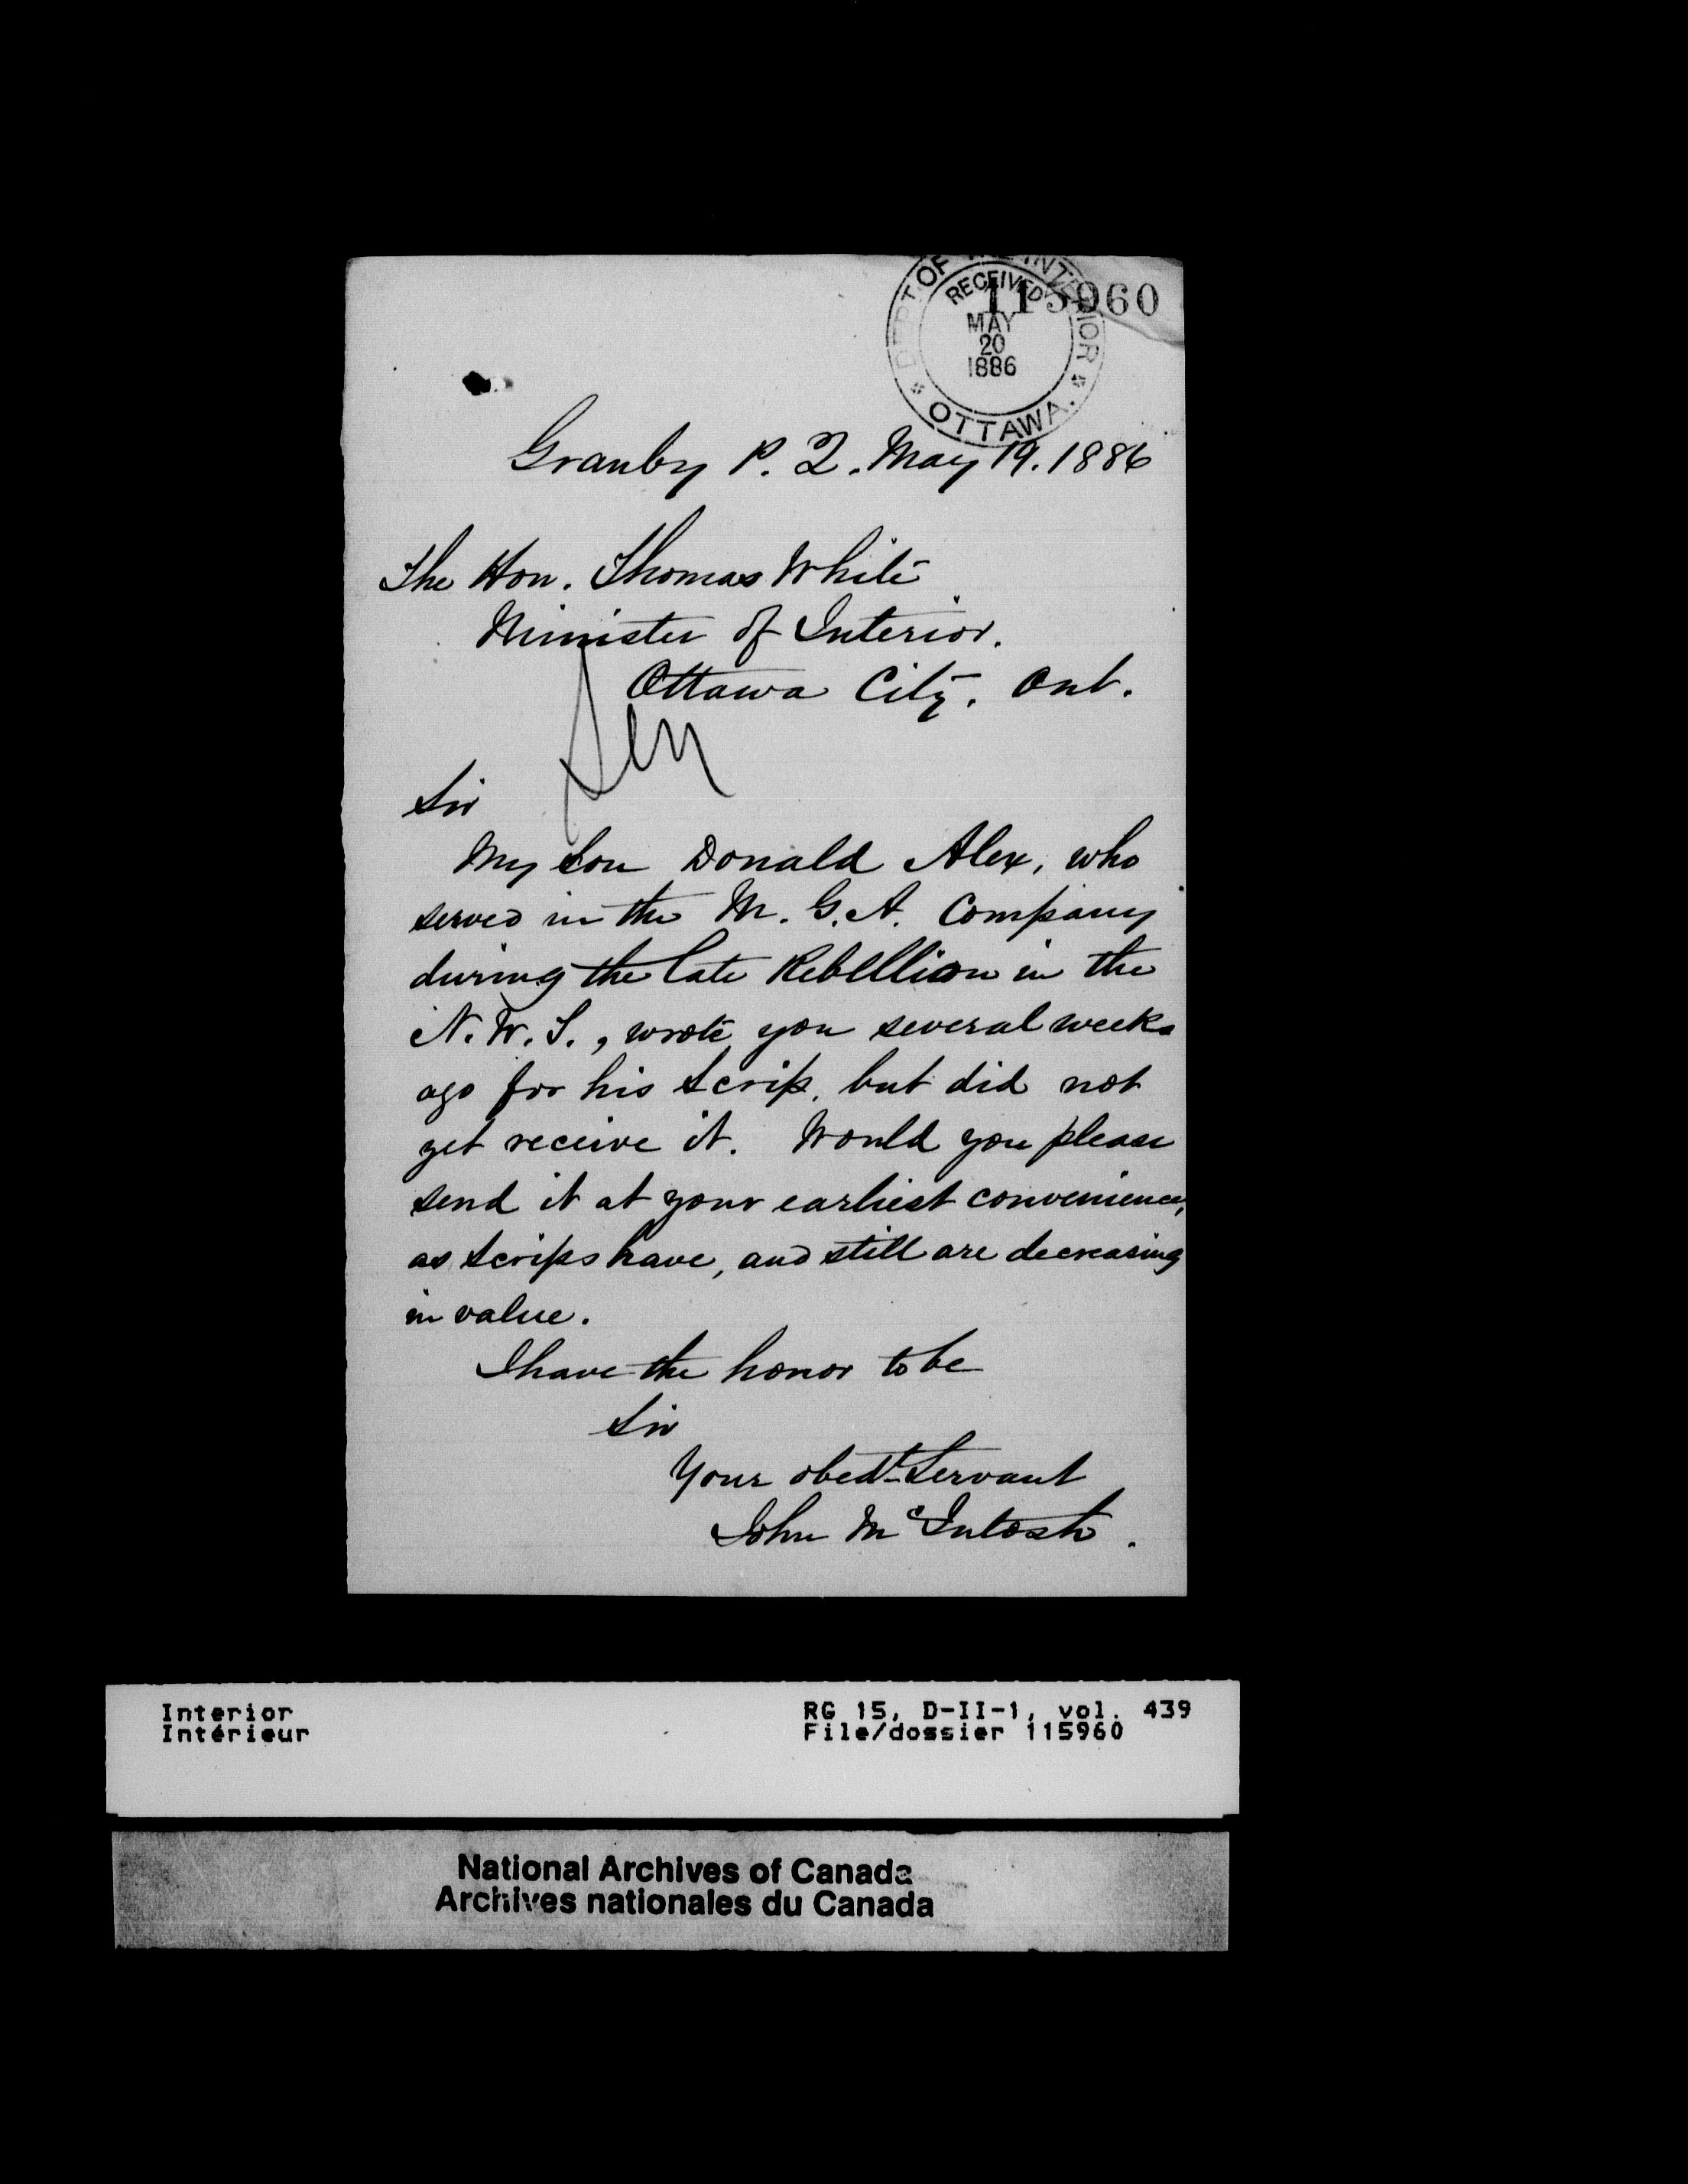 DEPT. OF THE INTERIOR
115960
RECEIVED
MAY
20
1886
OTTAWA.
Granby P. Q. May 19. 1886
The Hon. Thomas White
Minister of Interior.
Ottawa City. Ont.
Sir
My Son Donald Alex, who
served in the M. G. A. Company
during the late Rebellion in the
N. W. T., wrote you several weeks
ago for his Scrip, but did not
yet receive it. Would you please
send it at your earliest convenience,
as Scrips have, and still are decreasing
in value.
I have the honor to be
Sir
Your obedt Servant
John McIntosh.
Interior RG 15, D-II-1, vol. 439
Intérieur File/dossier 115960
National Archives of Canada
Archives nationales du Canada